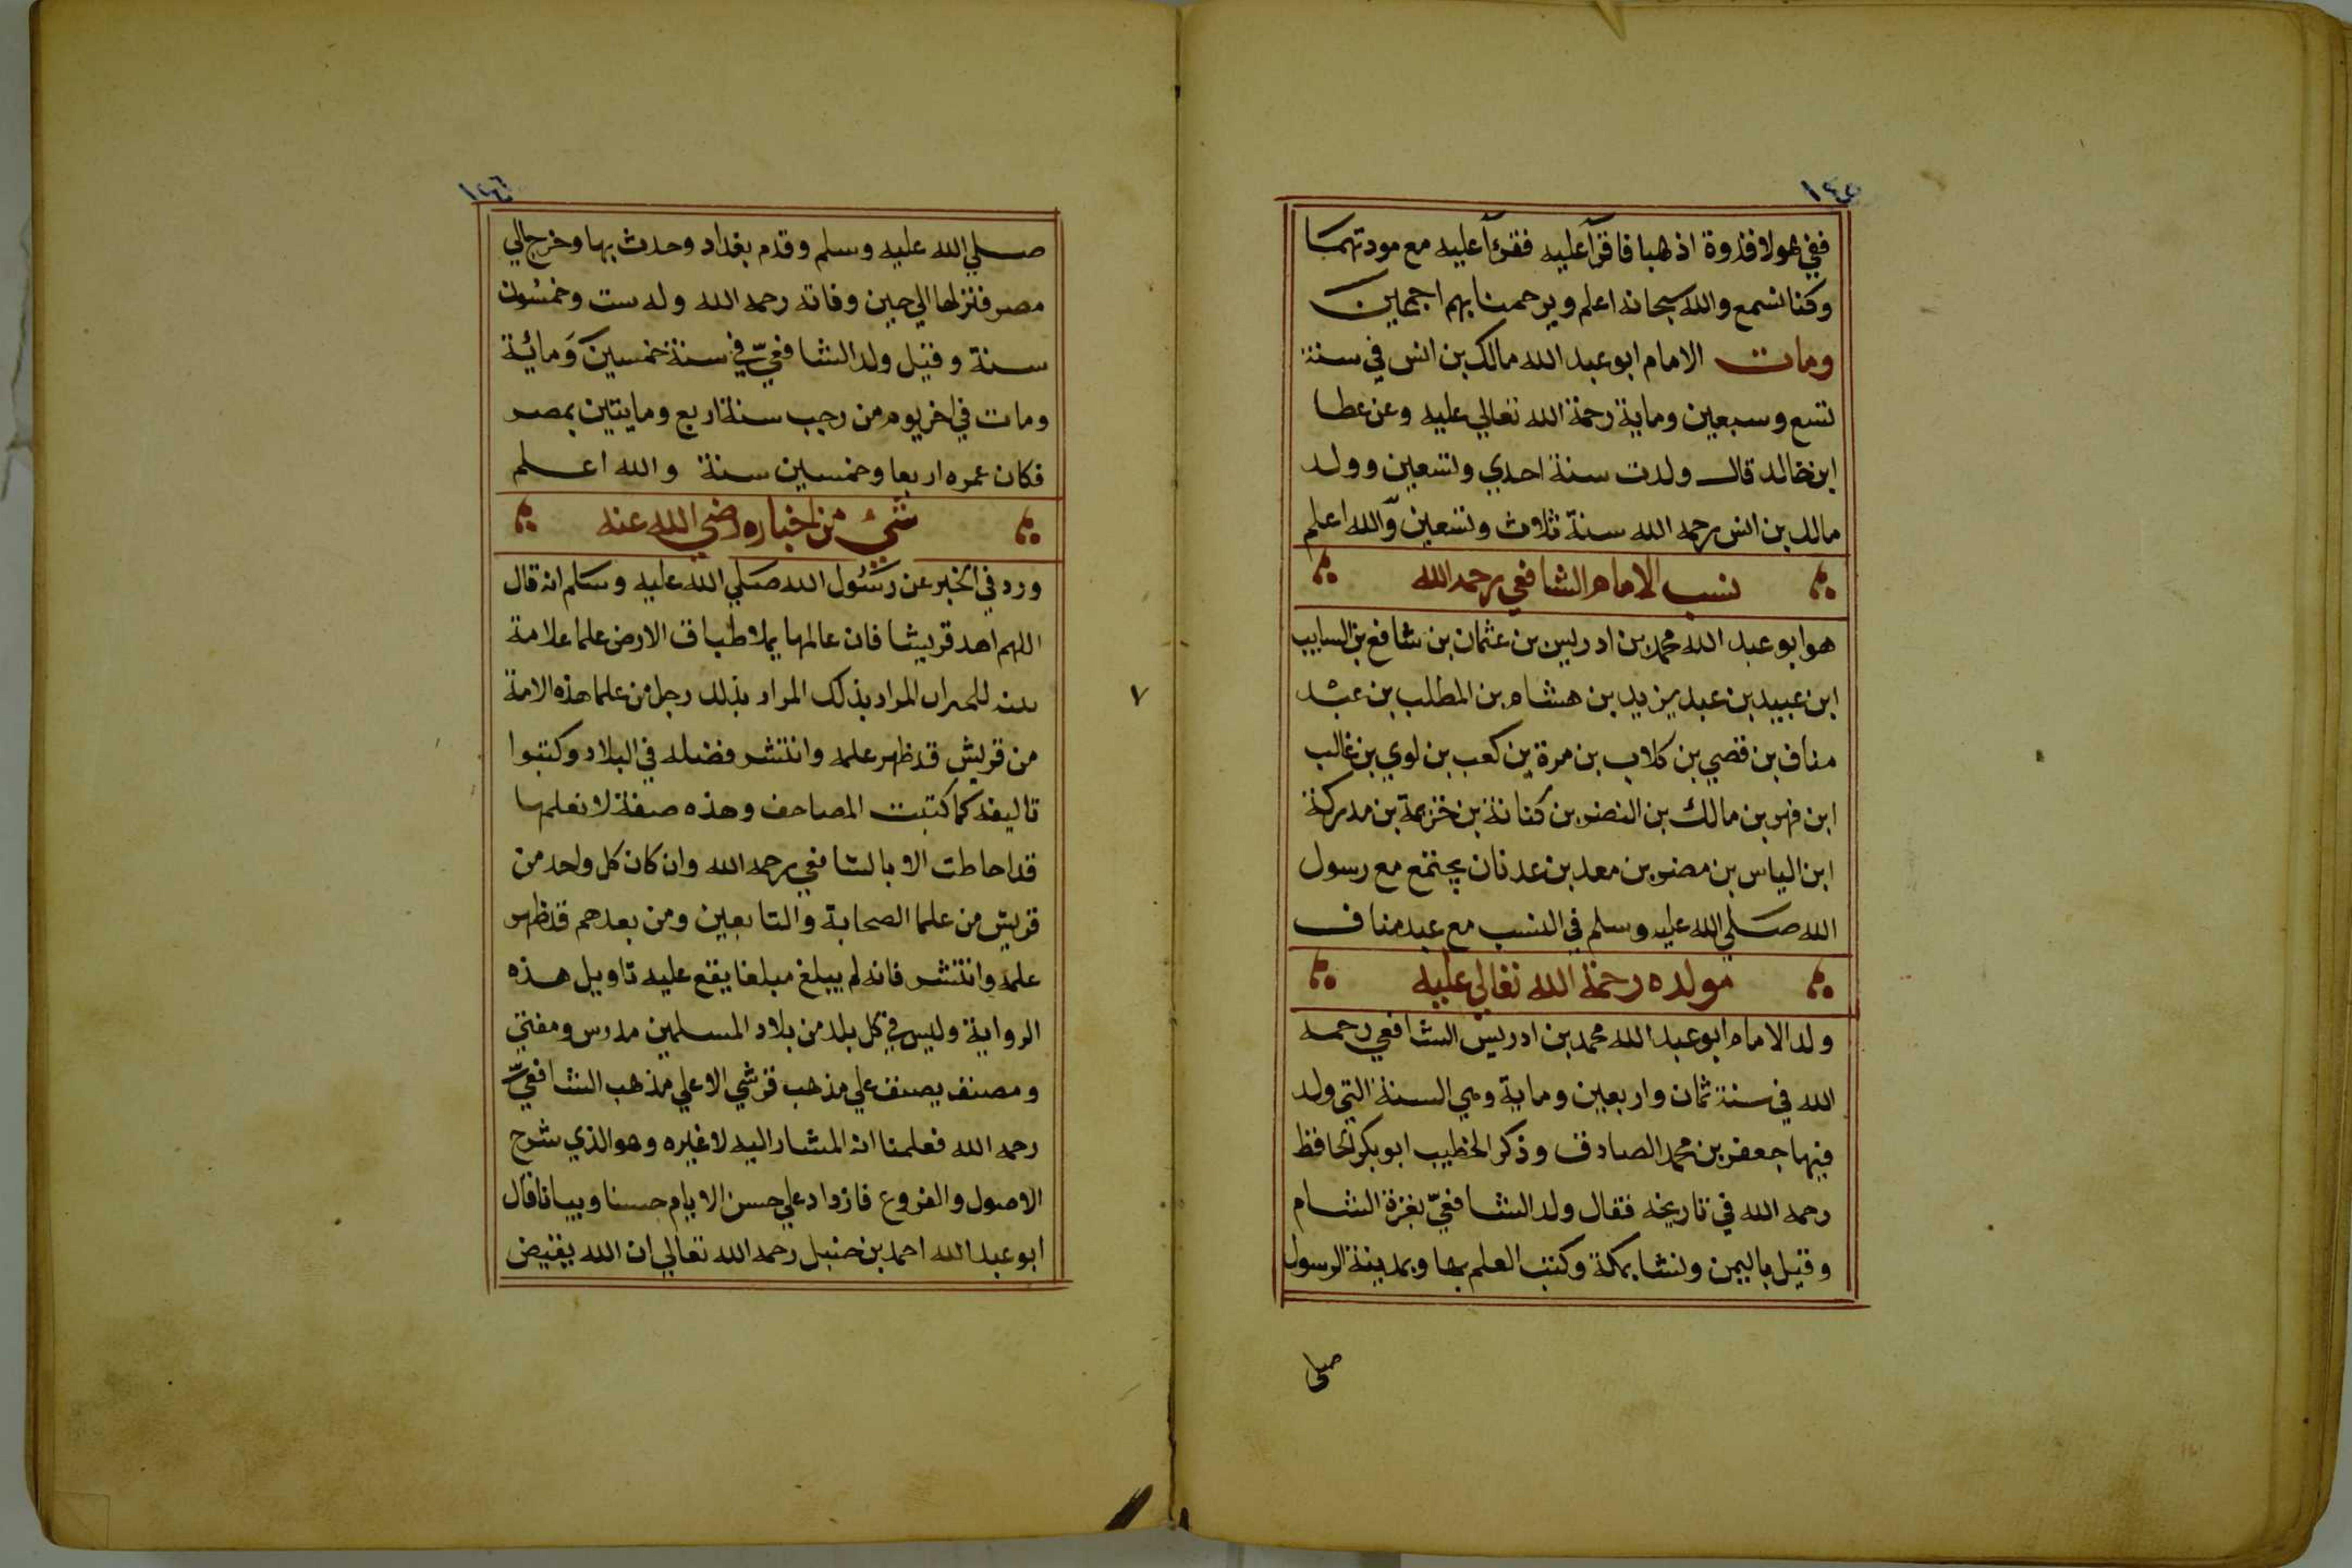 ١٤٥
ففي هولا قدوة اذهبا فاقرآ عليه فقرءآ عليه مع مودتهما
وكنا نسمع والله سبحانه اعلم ويرحمنا بهم اجمعين
ومات الامام ابو عبد الله مالك بن انس في سنة
تسع وسبعين وماية رحمة الله تعالي عليه وعن عطا
ابن خالد قال ولدت سنة احدي وتسعين وولد
مالك بن انس رحمه الله سنة ثلاث وتسعين والله اعلم
نسب الامام الشافعي رحمه الله
هو ابو عبد الله محمد بن ادريس بن عثمان بن شافع بن السايب
ابن عبيد بن عبد يزيد بن هشام بن المطلب بن عبد
مناف بن قصي بن كلاب بن مرة بن كعب بن لوي بن غالب
ابن فهر بن مالك بن النضر بن كنانة بن خزيمة بن مدركة
ابن الياس بن مضر بن معد بن عدنان يجتمع مع رسول
الله صلي الله عليه وسلم في النسب مع عبد مناف
مولده رحمة الله تعالي عليه
ولد الامام ابو عبد الله محمد بن ادريس الشافعي رحمه
الله في سنة ثمان واربعين وماية وهي السنة التي ولد
فيها جعفر بن محمد الصادق وذكر الخطيب ابو بكر الحافظ
رحمه الله في تاريخه فقال ولد الشافعيّ بغزة الشام
وقيل باليمن ونشا بمكة وكتب العلم بها وبمدينة الرسول
صلي
١٤٦
صلي الله عليه وسلم وقدم بغداد وحدث بها وخرج الي
مصر فنزلها الي حين وفاته رحمه الله وله ست وخمسون
سنة وقيل ولد الشافعيّ في سنة خمسين ومائة
ومات في اخر يوم من رجب سنة اربع ومايتين بمصر
فكان عمره اربعا وخمسين سنة والله اعلم
شيء من اخباره رضي الله عنه
ورد في الخبر عن رسول الله صلي الله عليه وسلم انه قال
اللهم اهد قريشا فان عالمها يملا طباق الارض علما علامة
المراد بذلك المراد بذلك رجل من علما هذه الامة
من قريش قد ظهر علمه وانتشر فضله في البلاد وكتبوا
تاليفه كما كتبت المصاحف وهذه صفة لا نعلمها
قد احاطت الا بالشافعي رحمه الله وان كان كل واحد من
قريش من علما الصحابة والتابعين ومن بعدهم قد ظهر
علمه وانتشر فانه لم يبلغ مبلغا يقع عليه تاويل هذه
الرواية وليس في كل بلد من بلاد المسلمين مدرس ومفتي
ومصنف يصنف علي مذهب قرشي الا علي مذهب الشافعيّ
رحمه الله فعلمنا انه المشار اليه لا غيره وهو الذي شرح
الاصول والفروع فازداد علي حسن الايام حسنا وبيانا قال
ابو عبد الله احمد بن حنبل رحمه الله تعالي ان الله يقيض
٧